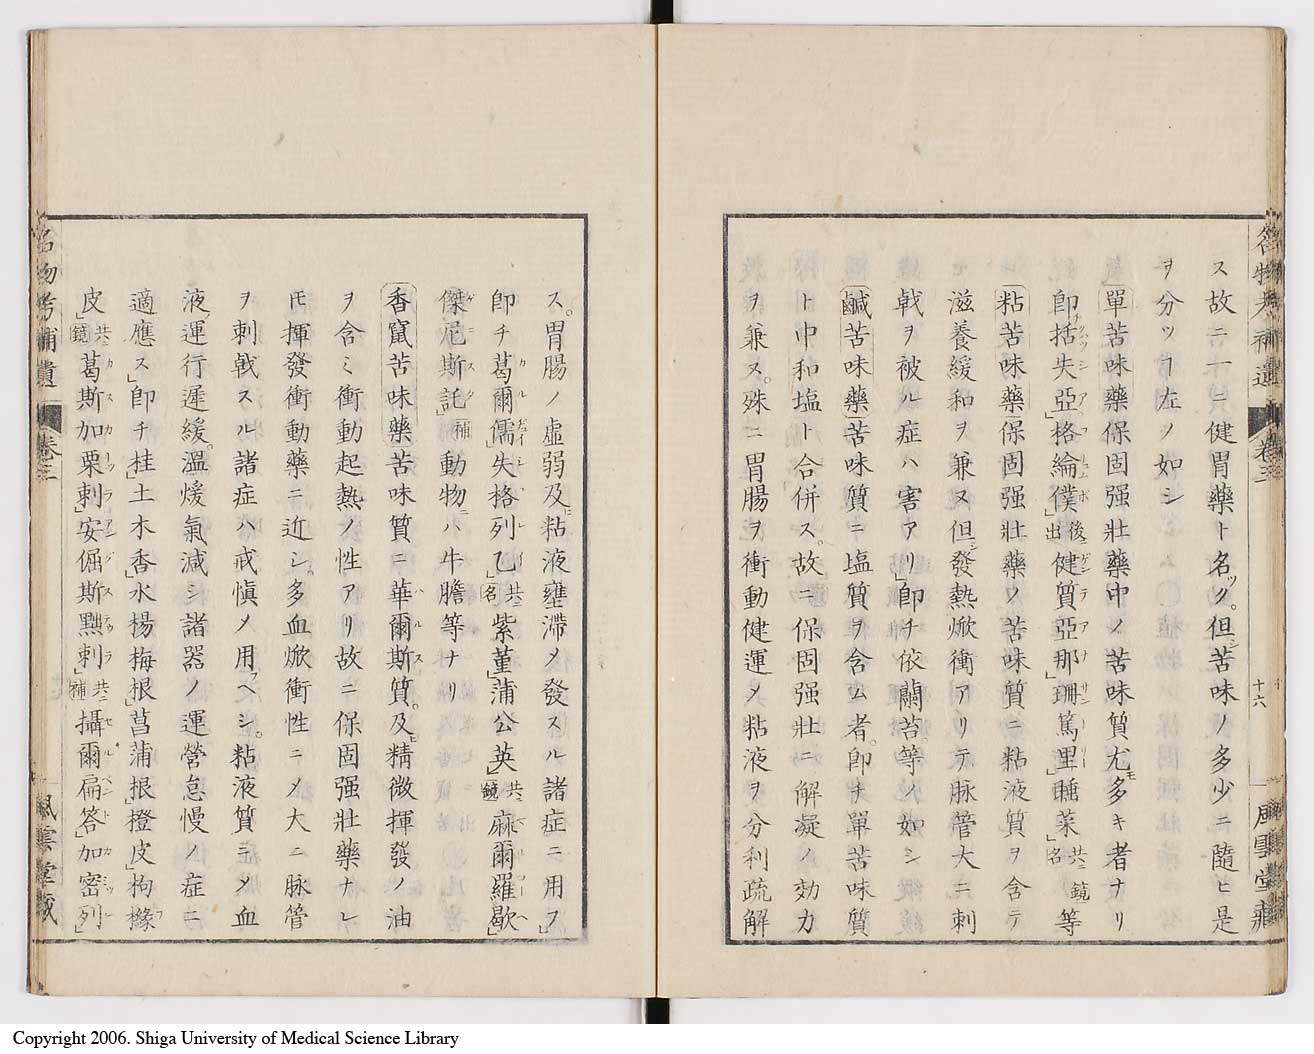 名物考補遺 卷三 十六 風雲堂藏
ス故ニ一ニ健胃藥ト名ツク。但シ苦味ノ多少ニ隨ヒ是
ヲ分ツヿ左ノ如シ
單苦味藥保固强壯藥中ノ苦味質尤モ多キ者ナリ
卽チ括失亞」格綸僕後出健質亞那」珊篤里」睡菜共ニ鏡名等
粘苦味藥保固强壯藥ノ苦味質ニ粘液質ヲ含テ
滋養緩和ヲ兼ヌ但シ發熱焮衝アリテ脉管大ニ刺
戟ヲ被ル症ハ害アリ」卽チ依蘭苔等ノ如シ
鹹苦味藥苦味質ニ塩質ヲ含ム者。卽チ單苦味質
ト中和塩ト合併ス。故ニ保固强壯ニ解凝ノ効力
ヲ兼ヌ。殊ニ胃腸ヲ衝動健運シ粘液ヲ分利疏解
ス。胃腸ノ虛弱及ヒ粘液壅滯ノ發スル諸症ニ用フ」
卽チ葛爾儒失格列乙」共ニ名紫菫」蒲公英」共ニ鏡麻爾羅歇」
傑尼斯託」補動物ハ牛膽等ナリ
香竄苦味藥苦味質ニ華爾斯質。及ヒ精微揮發ノ油
ヲ含ミ衝動起熱ノ性アリ故ニ保固强壯藥ナレ
𪜈揮發衝動藥ニ近シ。多血焮衝性ニメ大ニ脉管
ヲ刺戟スル諸症ハ戒愼メ用フヘシ。粘液質ニメ血
液運行遲緩。溫煖氣減シ諸器ノ運營怠慢ノ症ニ
適應ス」卽チ桂」土木香」水楊梅根」菖蒲根」橙皮」枸櫞
皮」共ニ鏡葛斯加栗剌」安倔斯㸃剌」共ニ補攝爾扁答」加密列」
名物考補遺 卷三 風雲堂藏
Copyright 2006. Shiga University of Medical Science Library